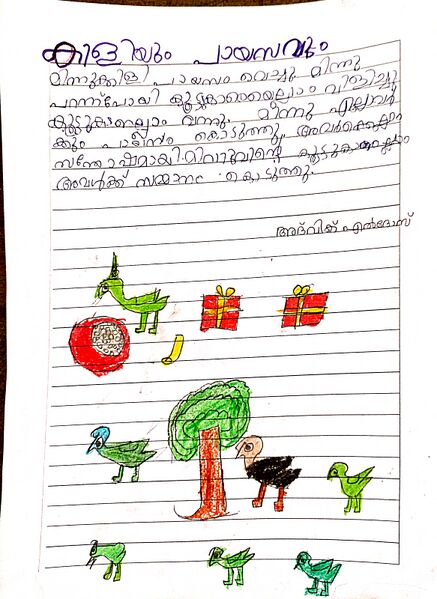 കിളിയും പായസവും
മിന്നുക്കിളി പായസം വെച്ചു. മിന്നു
പറന്ന്പോയി കൂട്ടുകാരെയെല്ലാം വിളിച്ചു
കൂട്ടുകാരെല്ലാം വന്നു. മിന്നു എല്ലാവർ
ക്കും പായസം കൊടുത്തു. അവർക്കെല്ലാം
സന്തോഷമായി. മിന്നുവിന്റെ കൂട്ടുകാരെല്ലാം
അവൾക്ക് സമ്മാനം കൊടുത്തു.
അദ്വിക് എൽദോസ്